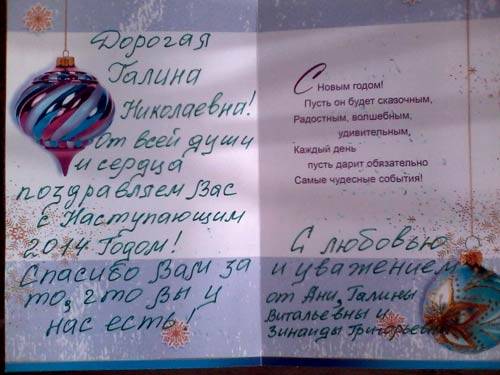 Дорогая
Галина
Николаевна!
От всей души
и сердца
поздравляем Вас
с Наступающим
2014 Годом!
Спасибо Вам за
то, что Вы у
нас есть!
С Новым годом!
Пусть он будет сказочным,
Радостным, волшебным,
удивительным,
Каждый день
пусть дарит обязательно
Самые чудесные события!
С любовью
и уважением
от Ани, Галины
Витальевны и
Зинаиды Григорьевны